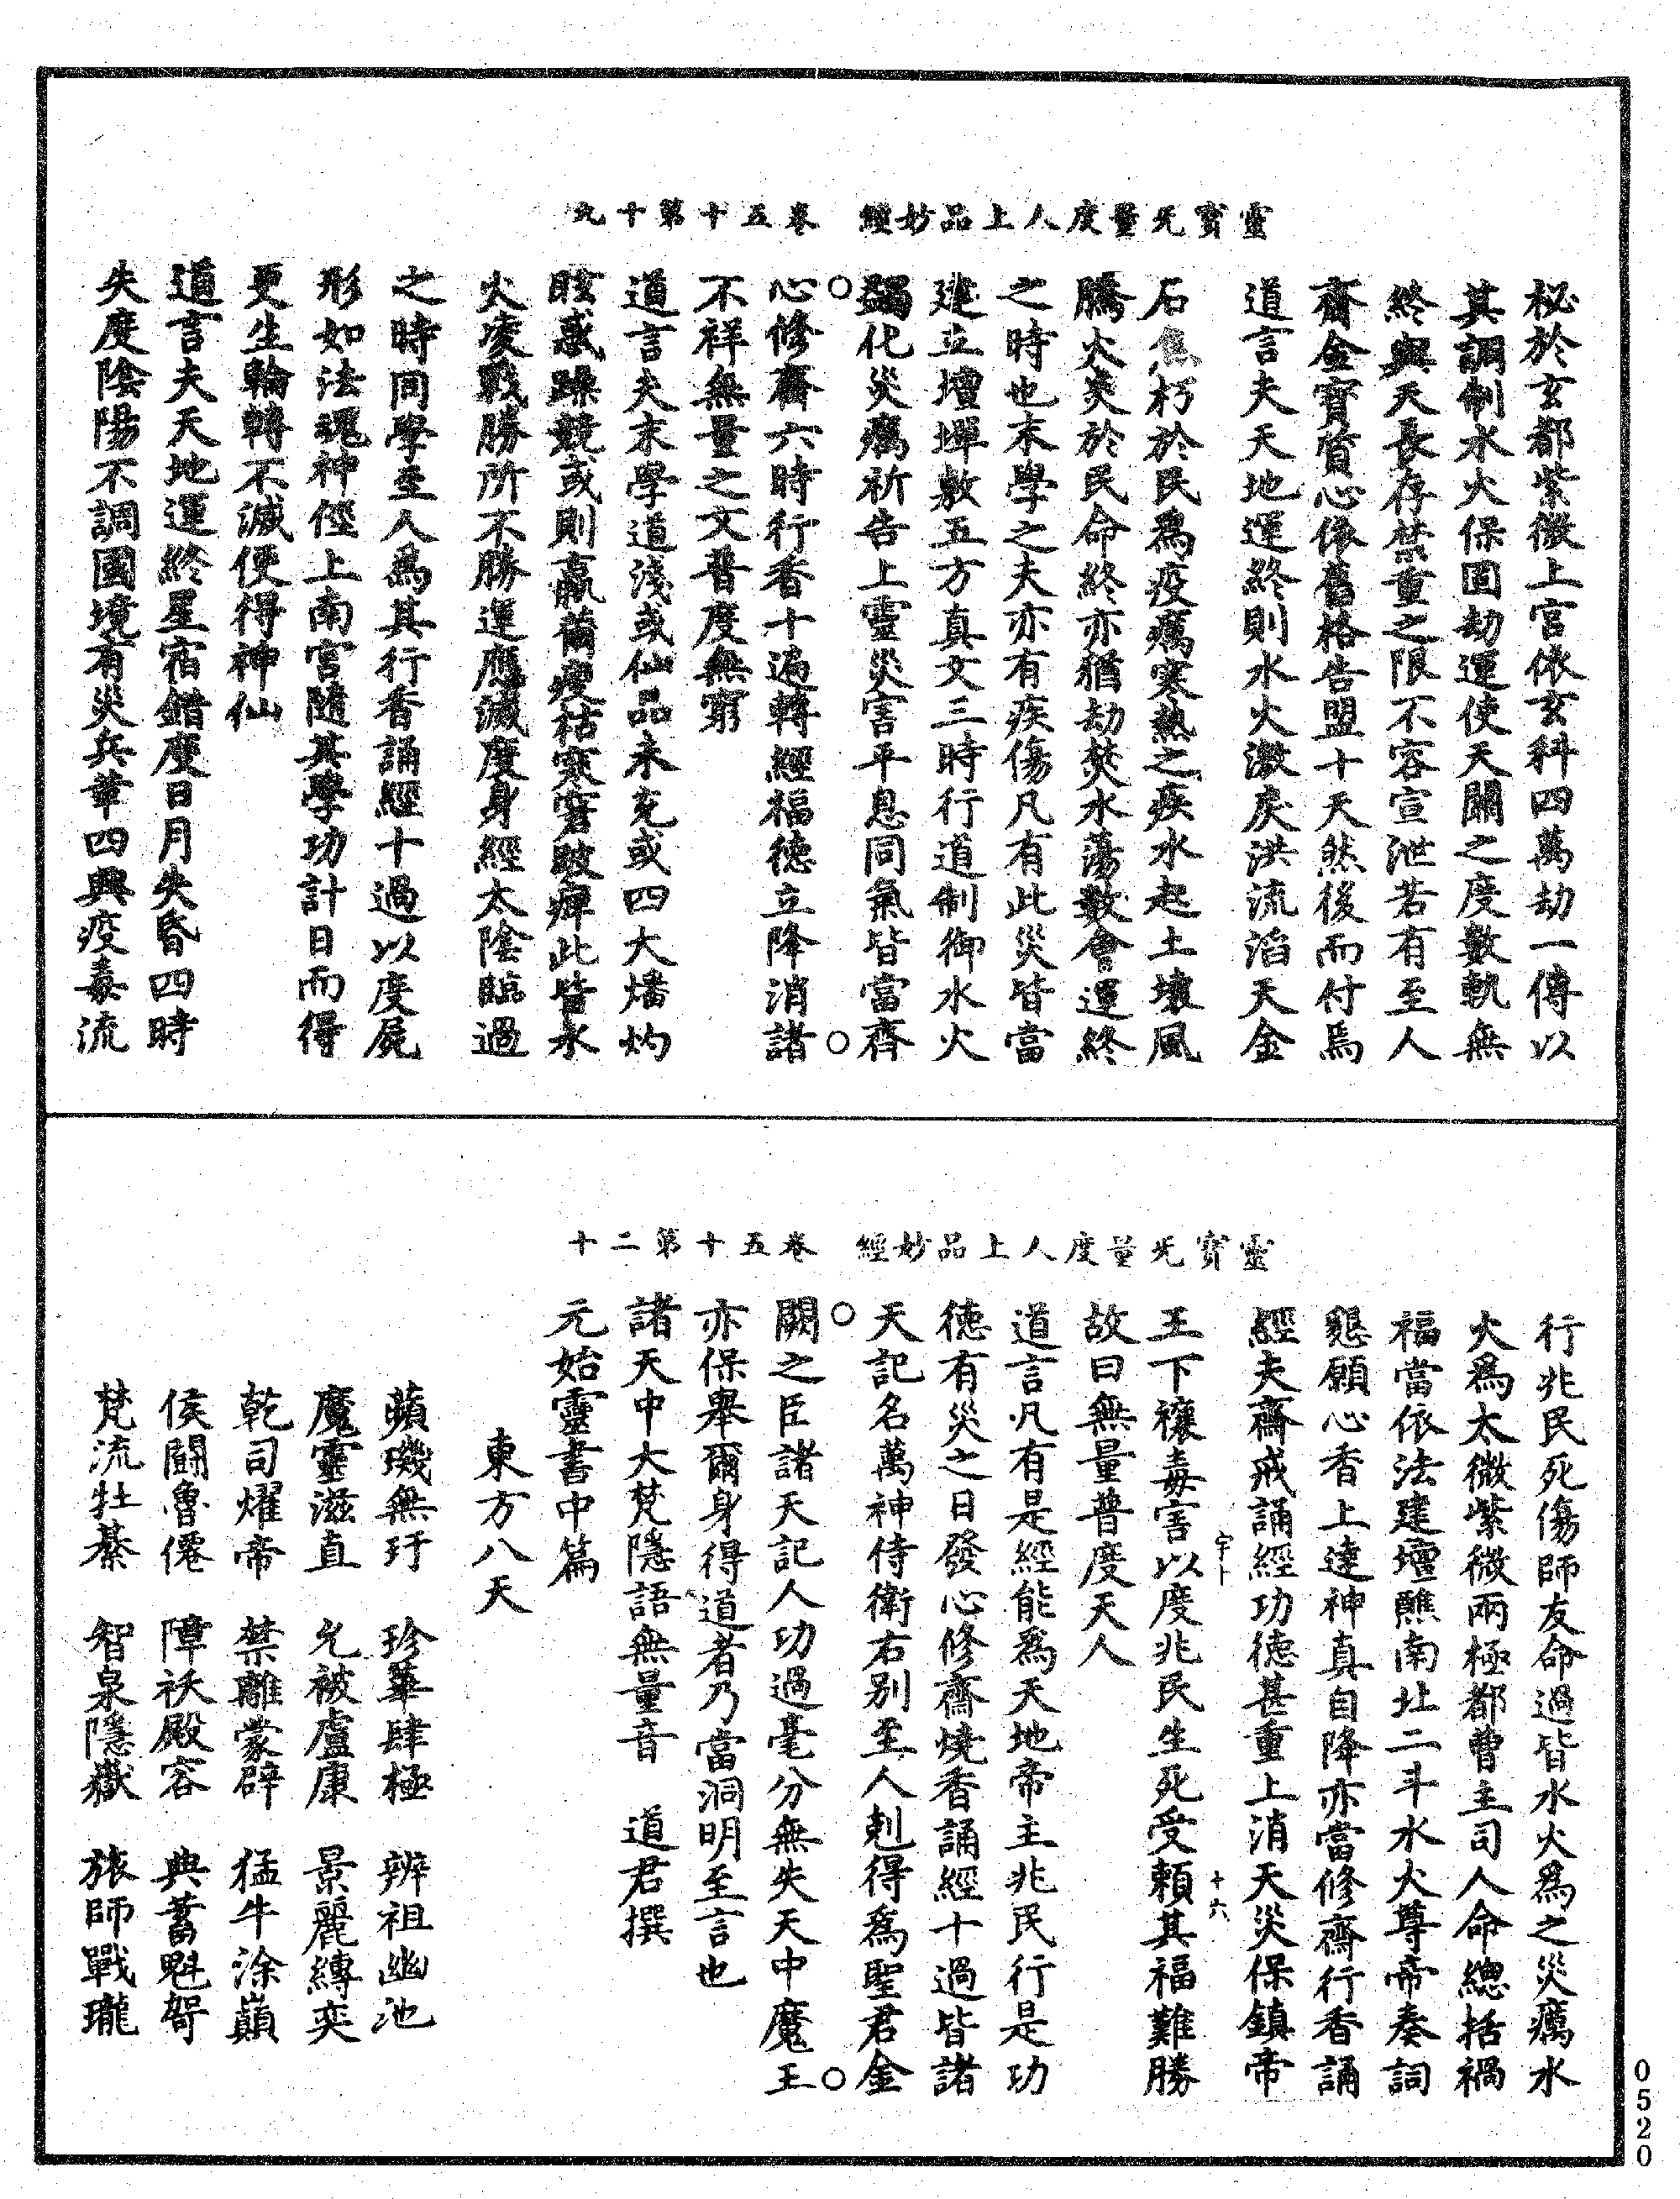 靈寳旡量度人上品妙經　卷五十第十九
秘於玄都紫微上宮依玄科四萬劫一傳以
其調制水火保固劫運使天關之度數軌無
終與天長存禁重之限不容宣泄若有至人
齎金寳質心依舊格告盟十天然後而付焉
道言夫天地運終則水火激戾洪流滔天金
石焦朽於民爲疫癘寒熱之疾水起土壤風
騰火炎於民命終亦猶劫焚水蕩數會運終
之時也末學之夫亦有疾傷凡有此災皆當
建立壇墠敷五方真文三時行道制御水火
蠲化災癘祈告上靈災害平息同氣皆當齊
心修齋六時行香十遍轉經福德立降消諸
不祥無量之文普度無窮
道言夫末學道淺或仙品未充或四大燔灼
眩惑躁競或則羸薾瘦枯寒窘跛痺此皆水
火凌戰勝所不勝運應滅度身經太陰臨過
之時同學至人爲其行香誦經十過以度屍
形如法魂神徑上南宮隨其學功計日而得
更生輪轉不滅便得神仙
道言夫天地運終星宿錯度日月失昏四時
失度陰陽不調國境有災兵革四興疫毒流
靈寳旡量度人上品妙經　卷五十第二十
行兆民死傷師友命過皆水火爲之災癘水
火爲太微紫微兩極都曹主司人命總括禍
福當依法建壇醮南北二斗水火尊帝奏詞
懇願心香上達神真自降亦當修齋行香誦
經夫齋戒誦經功德甚重上消天災保鎮帝
宇十　十六
王下禳毒害以度兆民生死受賴其福難勝
故曰無量普度天人
道言凡有是經能爲天地帝主兆民行是功
德有災之日發心修齋燒香誦經十過皆諸
天記名萬神侍衛右別至人剋得爲聖君金
闕之臣諸天記人功過毫分無失天中魔王
亦保舉爾身得道者乃當洞明至言也
諸天中大梵隱語無量音　道君撰
元始靈書中篇
東方八天
蘋璣無玗　珍華肆極　辨祖幽池
魔靈滋直　允被盧康　景麗縛奕
乾司燿帝　禁離蒙辟　猛牛涂巔
侯闘魯僊　障祅殿容　典蓄魁哿
梵流牡綦　智泉隱嶽　旅師戰瓏
0520